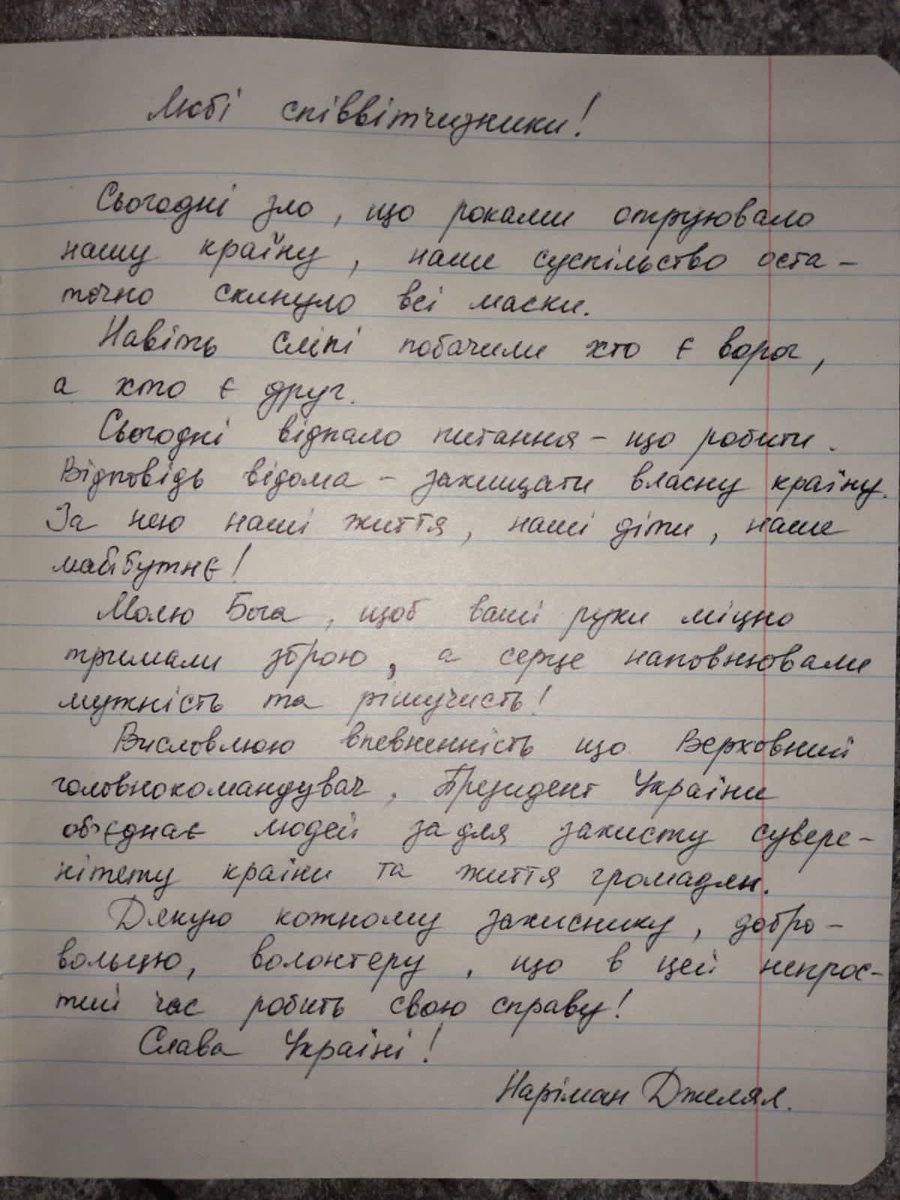 Любі співвітчизники!
Сьогодні зло, що роками отруювало
нашу країну, наше суспільство оста-
точно скинуло всі маски.
Навіть сліпі побачили хто є ворог,
а хто є друг.
Сьогодні відпало питання - що робити.
Відповідь відома - захищати власну країну.
За нею наші життя, наші діти, наше
майбутнє!
Молю Бога, щоб ваші руки міцно
тримали зброю, а серце наповнювали
мужність та рішучисть!
Висловлюю впевненність що Верховний
головнокомандувач, Президент України
об'єднає людей задля захисту сувере-
нітету країни та життя громадян.
Дякую кожному захиснику, добро-
вольцю, волонтеру, що в цей непрос-
тий час робить свою справу!
Слава Україні!
Наріман Джелял.